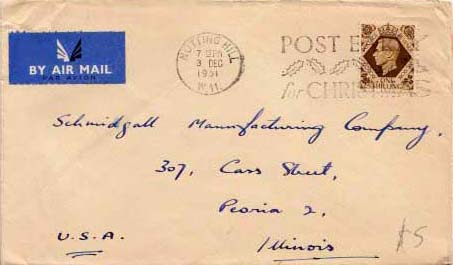 BY AIR MAIL
PAR AVION
NOTTING HILL
3 DEC
1951
W.11.
POST EARLY
for CHRISTMAS
ONE
SHILLING
Schmidgall Manufacturing Company,
307, Cass Street,
Peoria 2,
U.S.A.
Illinois
$5